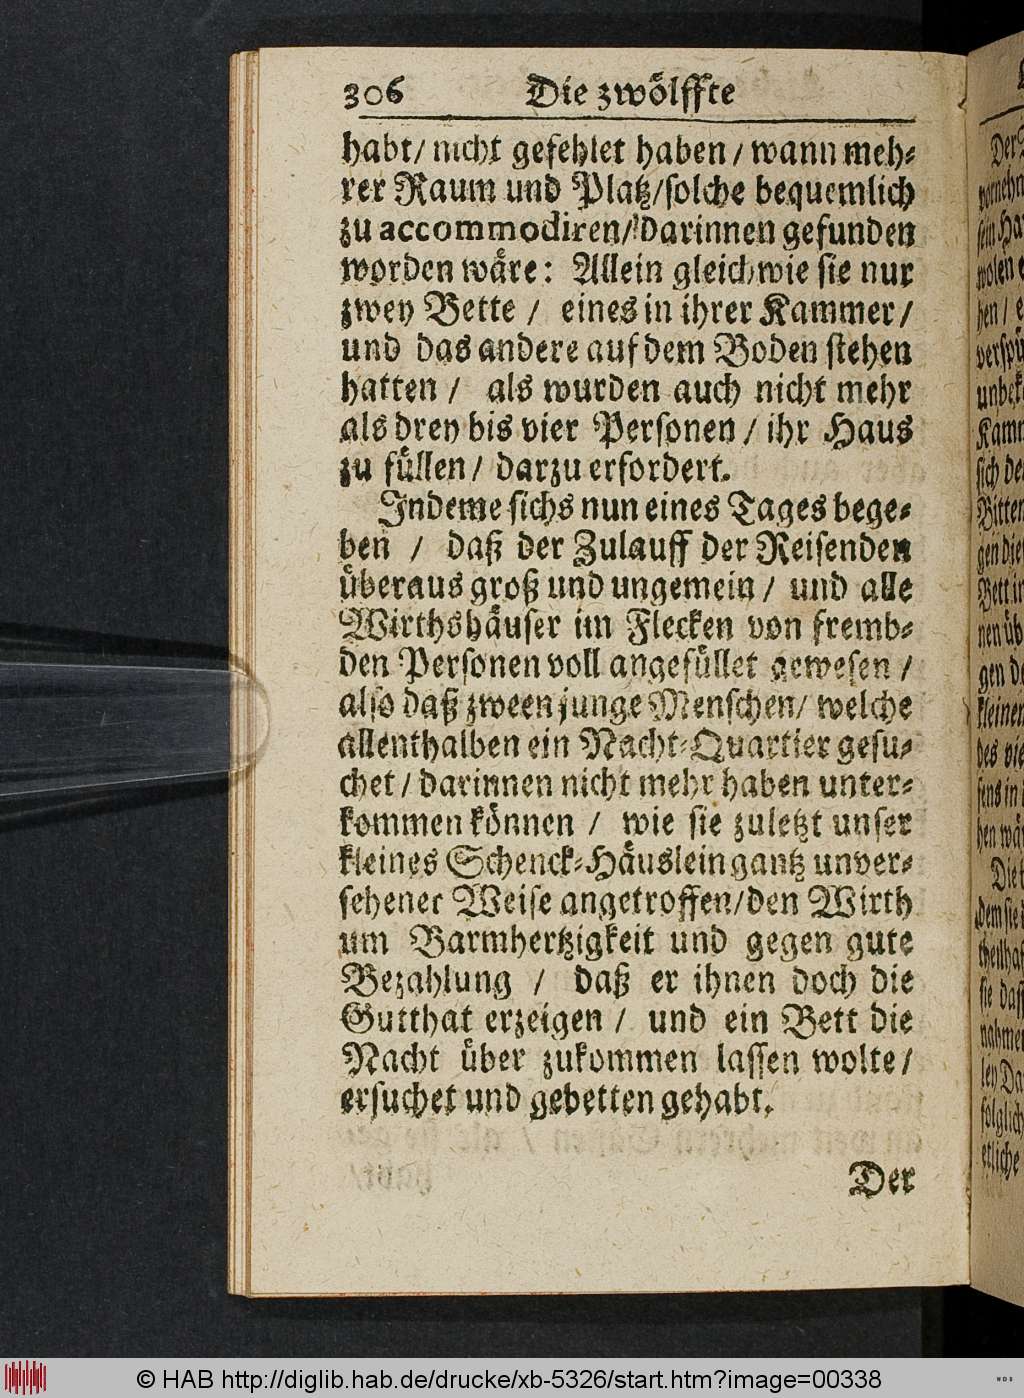 306 Die zwölffte
habt/ nicht gefehlet haben / wann meh-
rer Raum und Platz/solche bequemlich
zu accommodiren/ darinnen gefunden
worden wäre: Allein gleichwie sie nur
zwey Bette / eines in ihrer Kammer /
und das andere auf dem Boden stehen
hatten / als wurden auch nicht mehr
als drey bis vier Personen / ihr Haus
zu füllen / darzu erfordert.
Indeme sichs nun eines Tages bege-
ben / daß der Zulauff der Reisenden
überaus groß und ungemein / und alle
Wirthshäuser im Flecken von fremb-
den Personen voll angefüllet gewesen /
also daß zween junge Menschen/ welche
allenthalben ein Nacht-Quartier gesu-
chet / darinnen nicht mehr haben unter-
kommen können / wie sie zuletzt unser
kleines Schenck-Häuslein gantz unver-
sehener Weise angetroffen/den Wirth
um Barmhertzigkeit und gegen gute
Bezahlung / daß er ihnen doch die
Gutthat erzeigen / und ein Bett die
Nacht über zukommen lassen wolte /
ersuchet und gebetten gehabt.
Der
© HAB http://diglib.hab.de/drucke/xb-5326/start.htm?image=00338